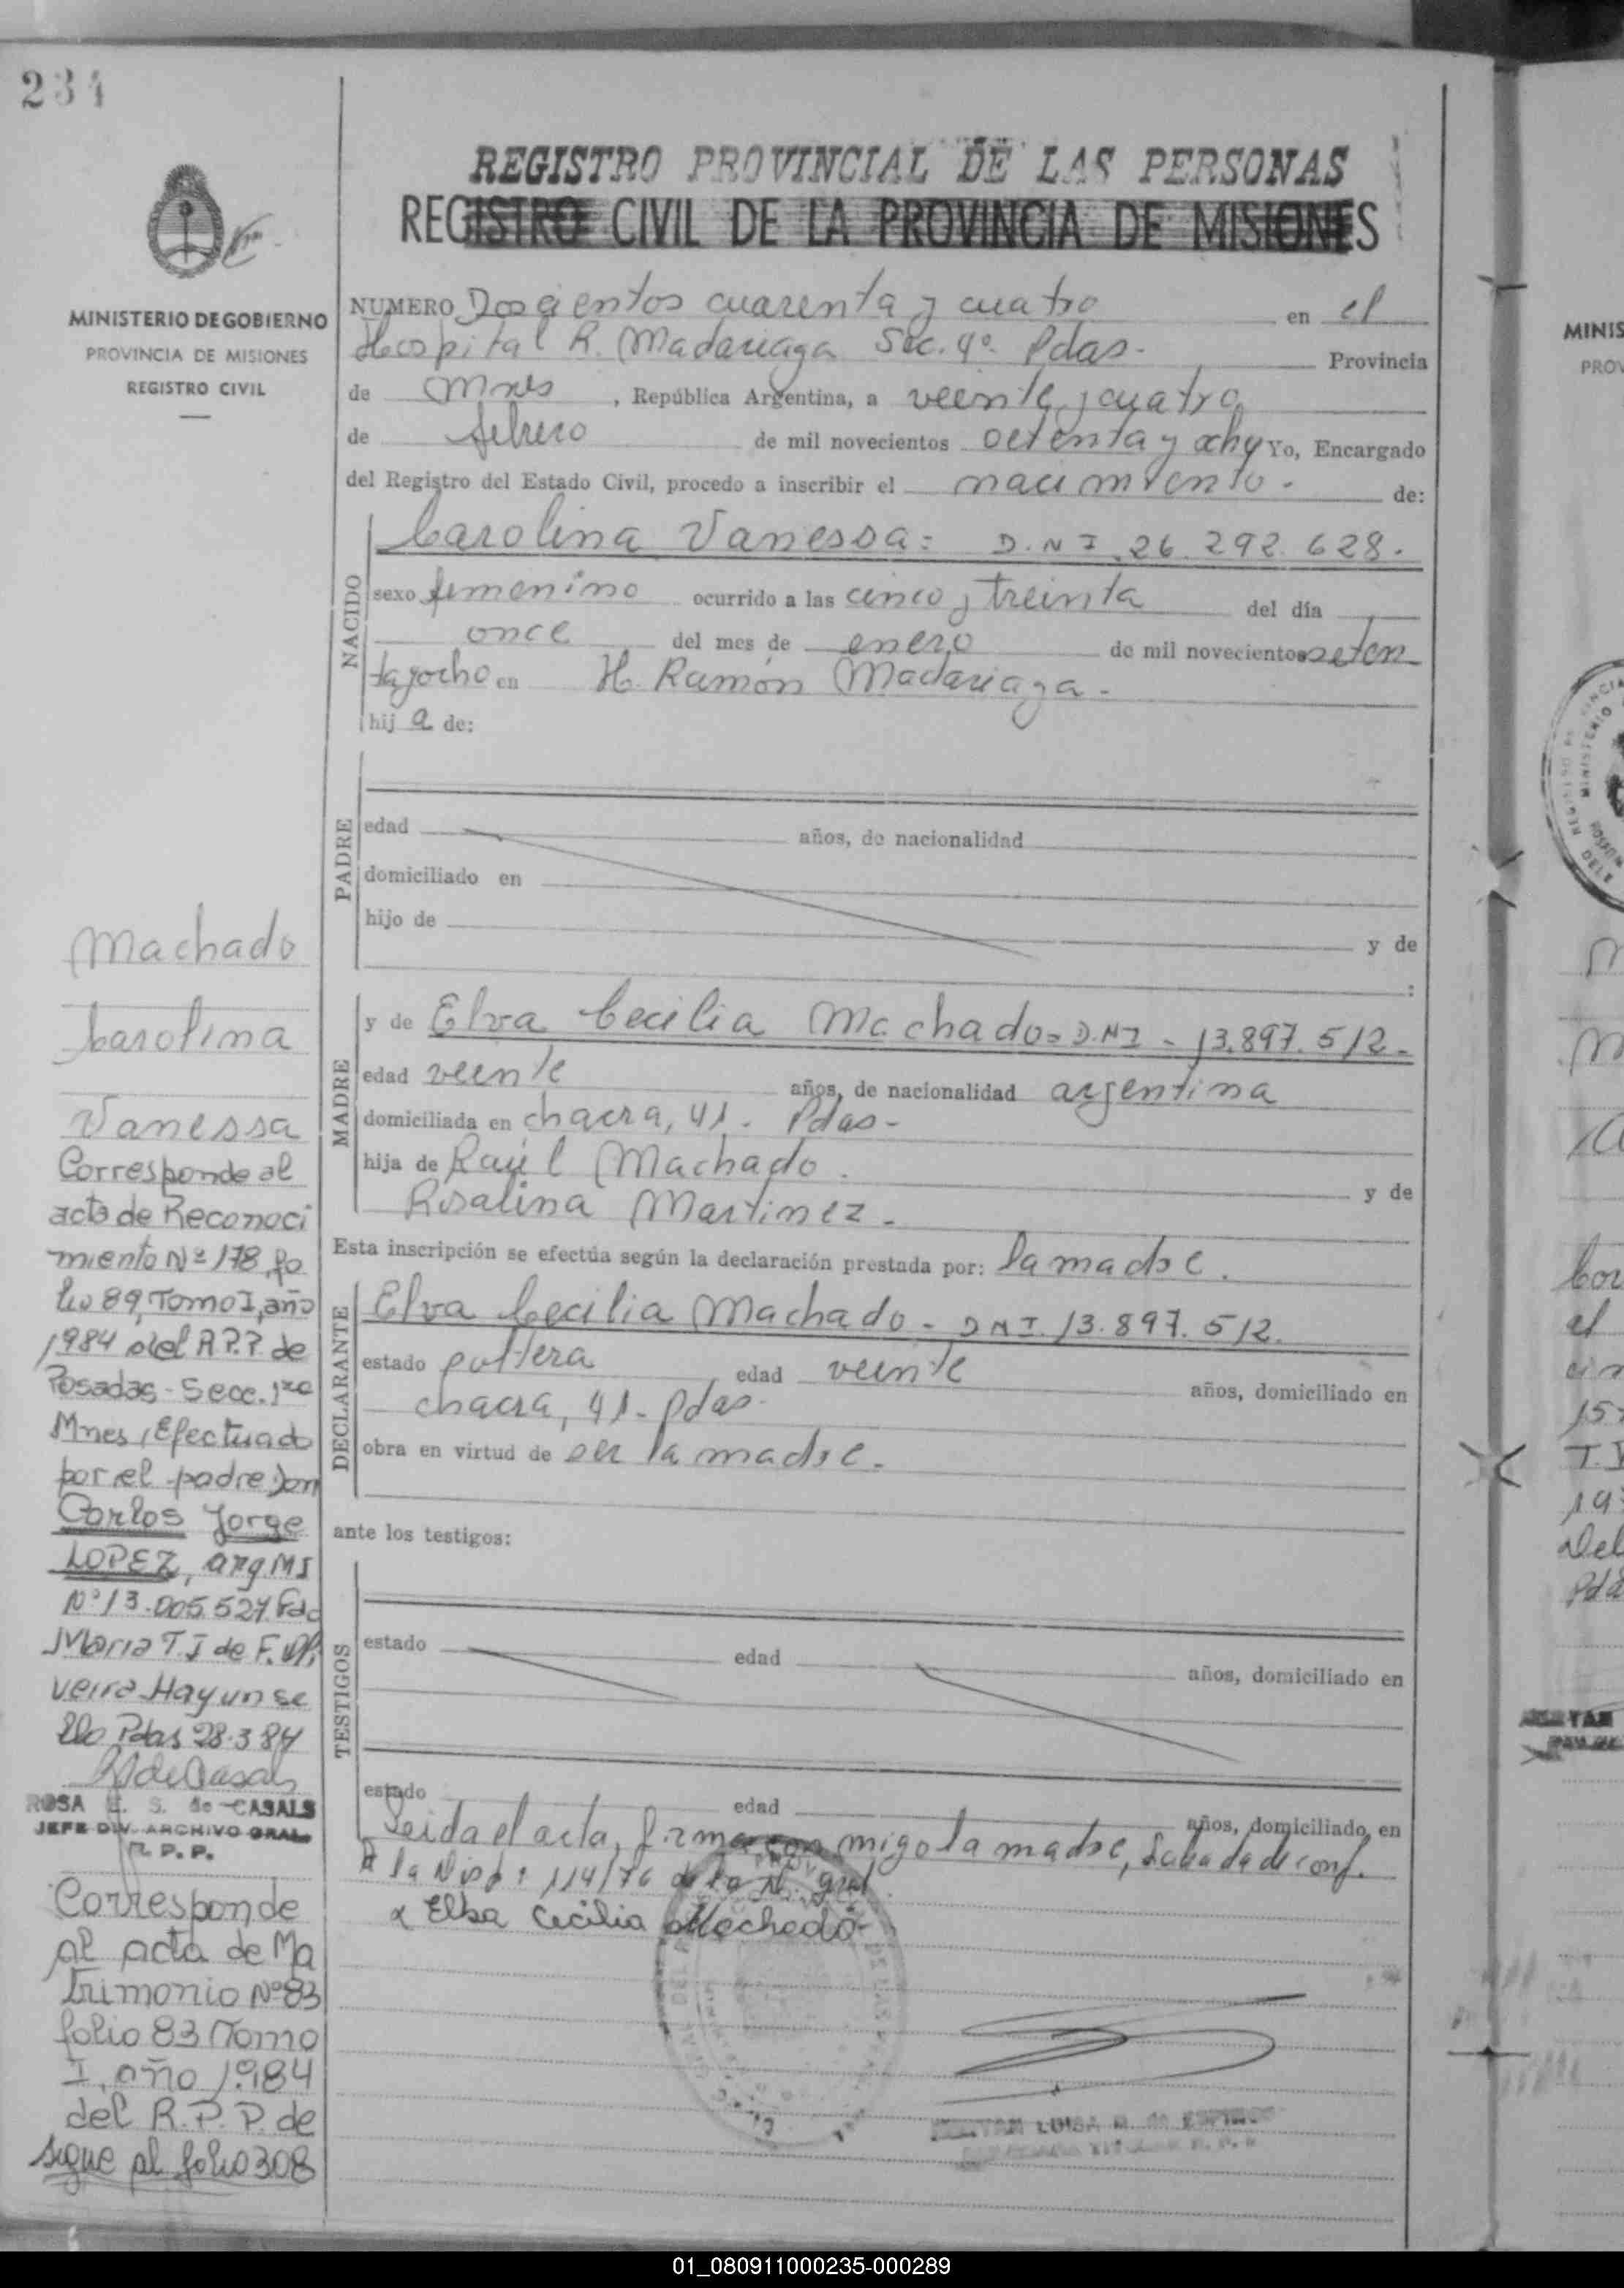 234
REGISTRO PROVINCIAL DE LAS PERSONAS
REGISTRO CIVIL DE LA PROVINCIA DE MISIONES
MINISTERIO DE GOBIERNO
PROVINCIA DE MISIONES
REGISTRO CIVIL
NUMERO Doscientos cuarenta y cuatro en el
Hospital R. Madariaga Sec. 4º. Pdas. Provincia
de Mnes, República Argentina, a veinte y cuatro
de febrero de mil novecientos setenta y ocho Yo, Encargado
del Registro del Estado Civil, procedo a inscribir el nacimiento. de:
NACIDO
Carolina Vanessa= D.N.I. 26.292.628.
sexo femenino ocurrido a las cinco y treinta del día
once del mes de enero de mil novecientos seten
ta y ocho en H. Ramón Madariaga.
hij a de:
PADRE
edad años, de nacionalidad
domiciliado en
hijo de y de
:
MADRE
y de Elva Cecilia Machado= D.N.I - 13.897.512.
edad veinte años, de nacionalidad argentina
domiciliada en chacra, 41. Pdas.
hija de Raúl Machado. y de
Rosalina Martinez.
Esta inscripción se efectúa según la declaración prestada por: la madre.
DECLARANTE
Elva Cecilia Machado - DNI. 13.897.512.
estado soltera edad veinte años, domiciliado en
chacra, 41- Pdas.
obra en virtud de ser la madre.
ante los testigos:
TESTIGOS
estado edad años, domiciliado en
estado edad años, domiciliado en
Leida el acta, firma conmigo la madre, de conf.
a la Disp: 114/76 de la gral.
Elba Cecilia Machado
LUISA
Machado
Carolina
Vanessa
Corresponde al
acta de Reconoci
miento Nº 178, fo
lio 89, Tomo I, año
1984 del R.P.P. de
Posadas - Secc. 1ra
Mnes, Efectuado
por el padre Don
Carlos Jorge
LOPEZ, arg MI
Nº 13.005.527. Fdo
Maria T. I de F. Oli
veira - Hay un se
llo Pdas 28.3.84
ROSA E. S. de CASALS
JEFE DIV. ARCHIVO GRAL.
R. P. P.
Corresponde
al acta de Ma
trimonio Nº 83
folio 83 Tomo
I, año 1984
del R.P.P. de
sigue al folio 308
01_080911000235-000289